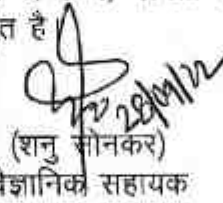 त है।
28/09/22
(शनु सोनकर)
वैज्ञानिक सहायक